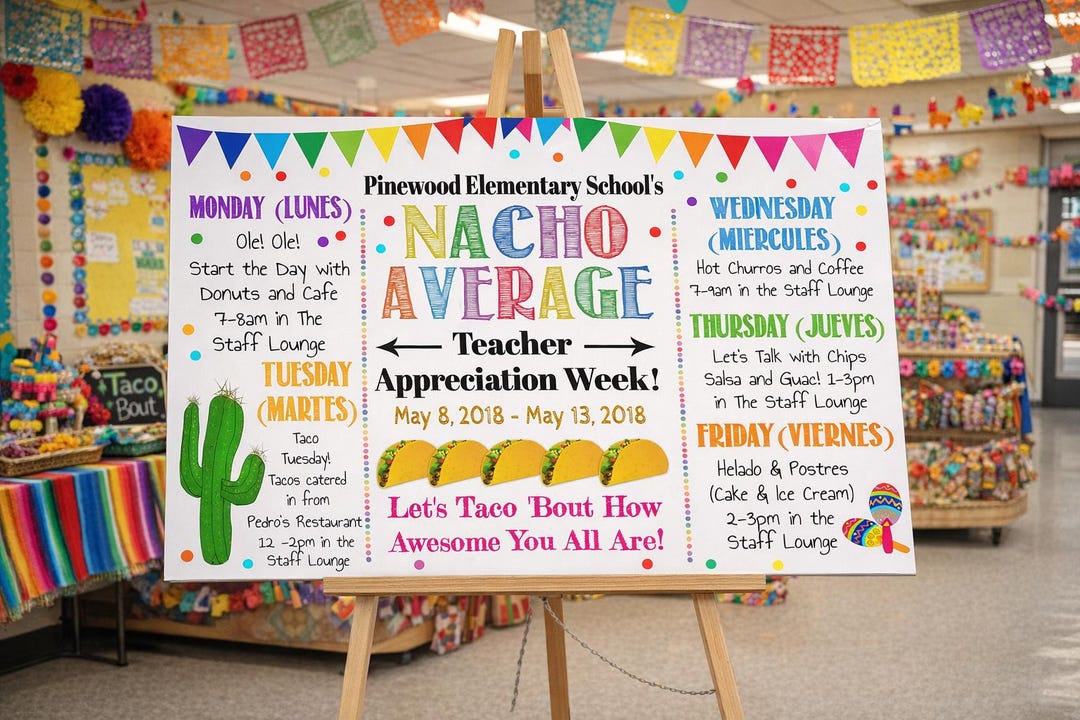 Pinewood Elementary School's
NACHO
AVERAGE
Teacher
Appreciation Week!
May 8, 2018 - May 13, 2018
Let's Taco 'Bout How
Awesome You All Are!
MONDAY (LUNES)
Ole! Ole!
Start the Day with
Donuts and Cafe
7-8am in The
Staff Lounge
TUESDAY
(MARTES)
Taco
Tuesday!
Tacos catered
in from
Pedro's Restaurant
12 -2pm in the
Staff Lounge
WEDNESDAY
(MIERCULES)
Hot Churros and Coffee
7-9am in the Staff Lounge
THURSDAY (JUEVES)
Let's Talk with Chips
Salsa and Guac! 1-3pm
in The Staff Lounge
FRIDAY (VIERNES)
Helado & Postres
(Cake & Ice Cream)
2-3pm in the
Staff Lounge
Taco
Bout